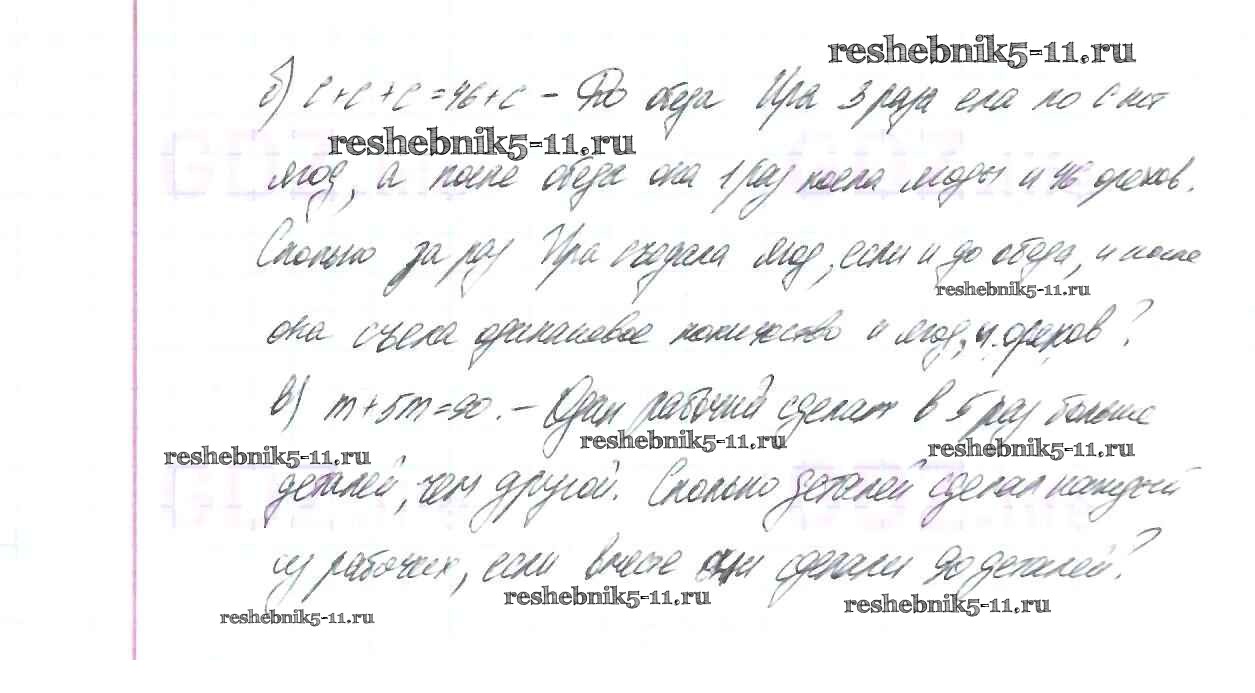 reshebnik5-11.ru
б) c+c+c=46+c – До обеда Ира 3 раза ела по c шт
reshebnik5-11.ru
ягод, а после обеда она 1 раз поела ягоды и 46 орехов.
Сколько за раз Ира съедала ягод, если и до обеда, и после
reshebnik5-11.ru
она съела одинаковое количество и ягод, и орехов?
в) m+5m=90. – Один рабочий сделал в 5 раз больше
reshebnik5-11.ru reshebnik5-11.ru reshebnik5-11.ru
деталей, чем другой. Сколько деталей сделал каждый
из рабочих, если вместе они сделали 90 деталей?
reshebnik5-11.ru reshebnik5-11.ru reshebnik5-11.ru